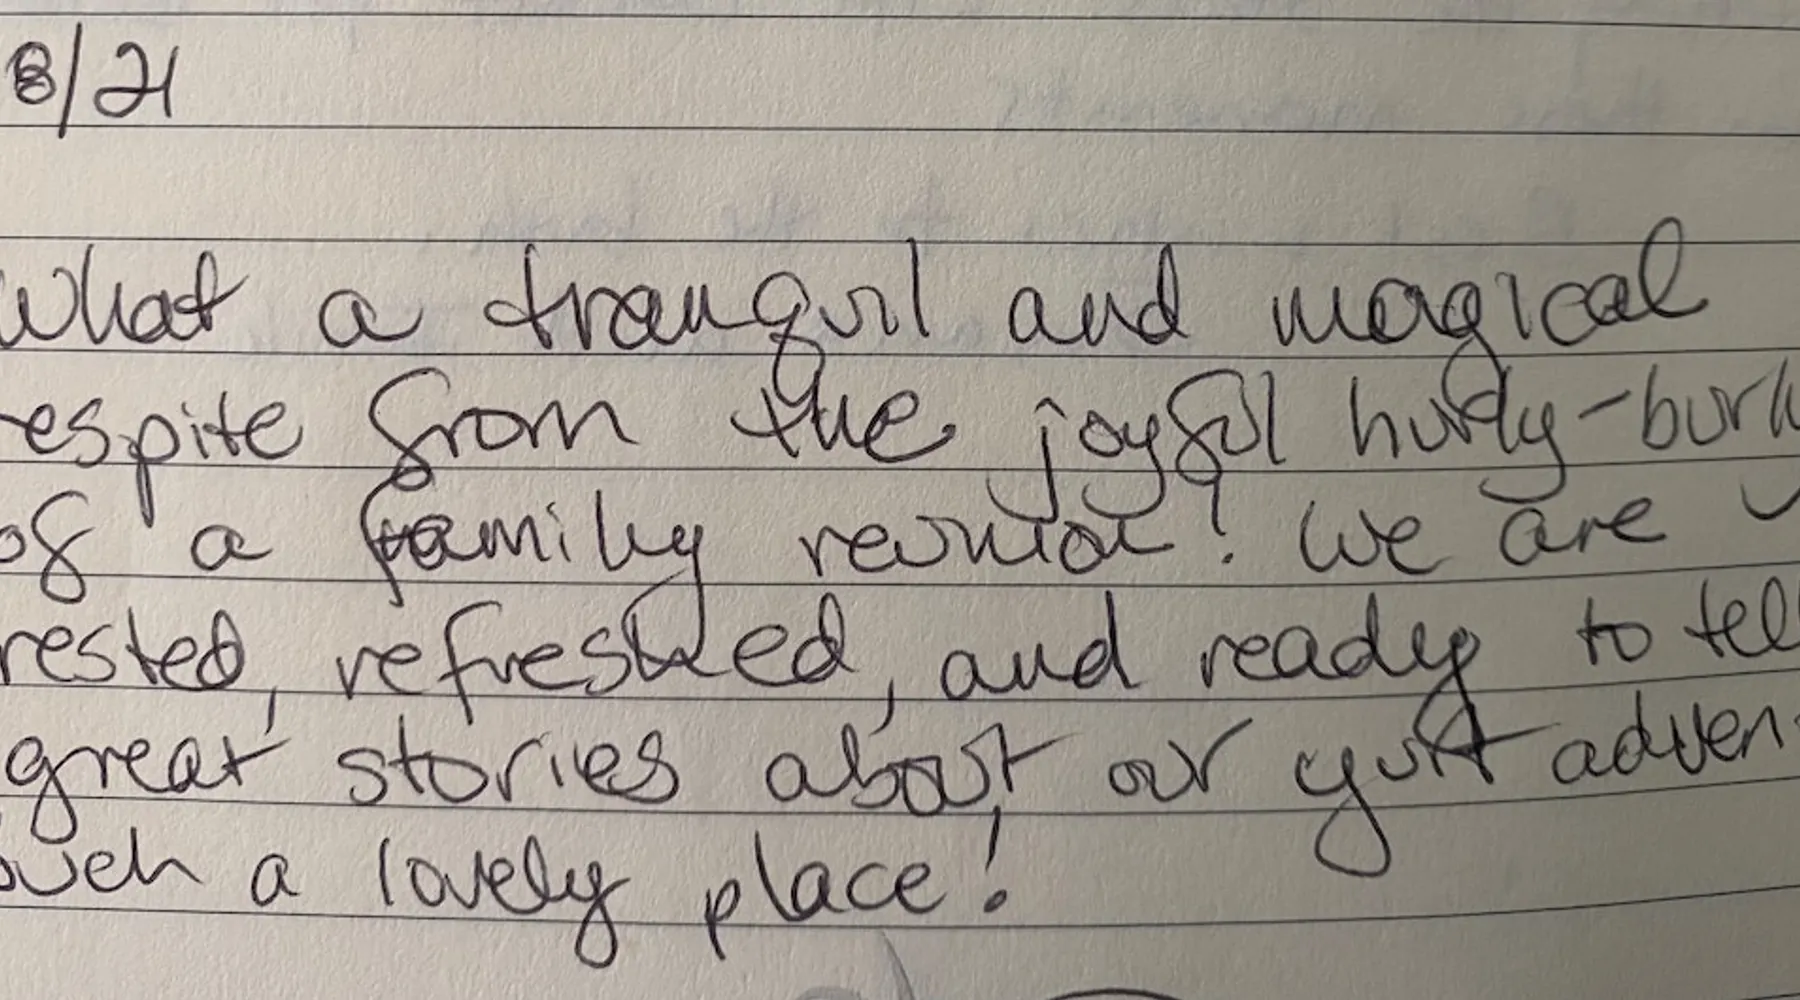 8/21
What a tranquil and magical
respite from the joyful hurdy-burly
of a family reunion! We are
rested, refreshed, and ready to tell
great stories about our yurt adven
such a lovely place!